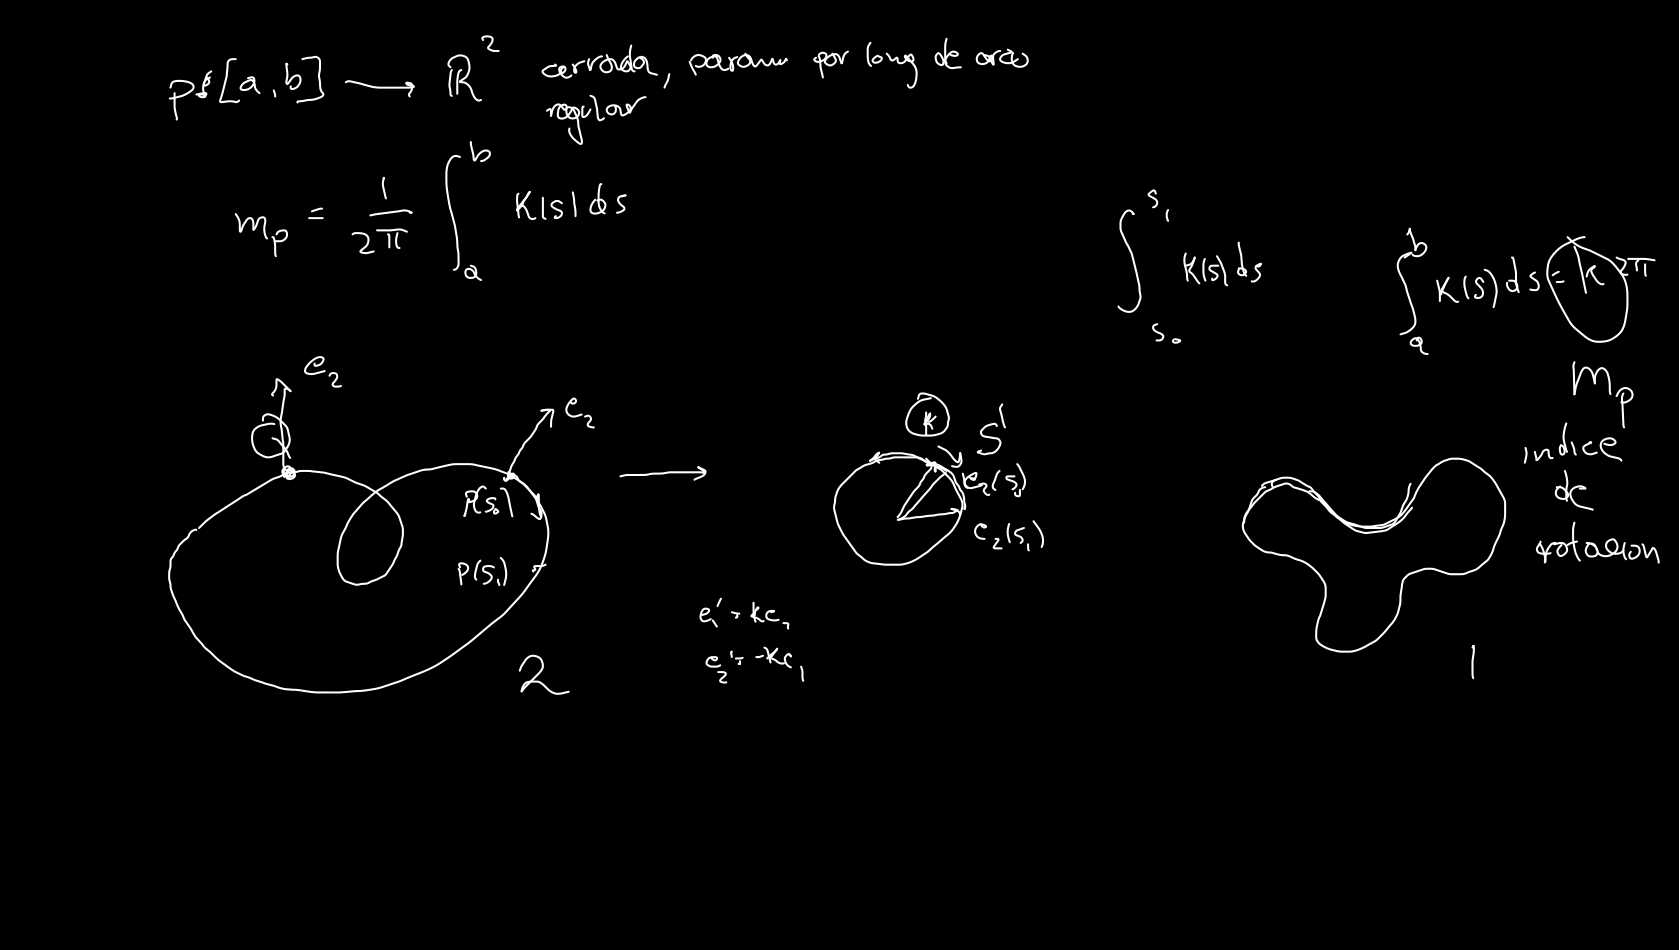 p: [a, b] → ℝ² cerrada, param por long de arco
regular
m_p = 1/2π ∫_a^b K(s) ds
∫_{s₀}^{s₁} K(s) ds
∫_a^b K(s) ds = k 2π
m_p
indice
de
rotacion
e₂
Q
e₂
p(s₀)
p(s₁)
2
k
S¹
e₂(s₀)
e₂(s₁)
e₁' = ke₂
e₂' = -ke₁
1